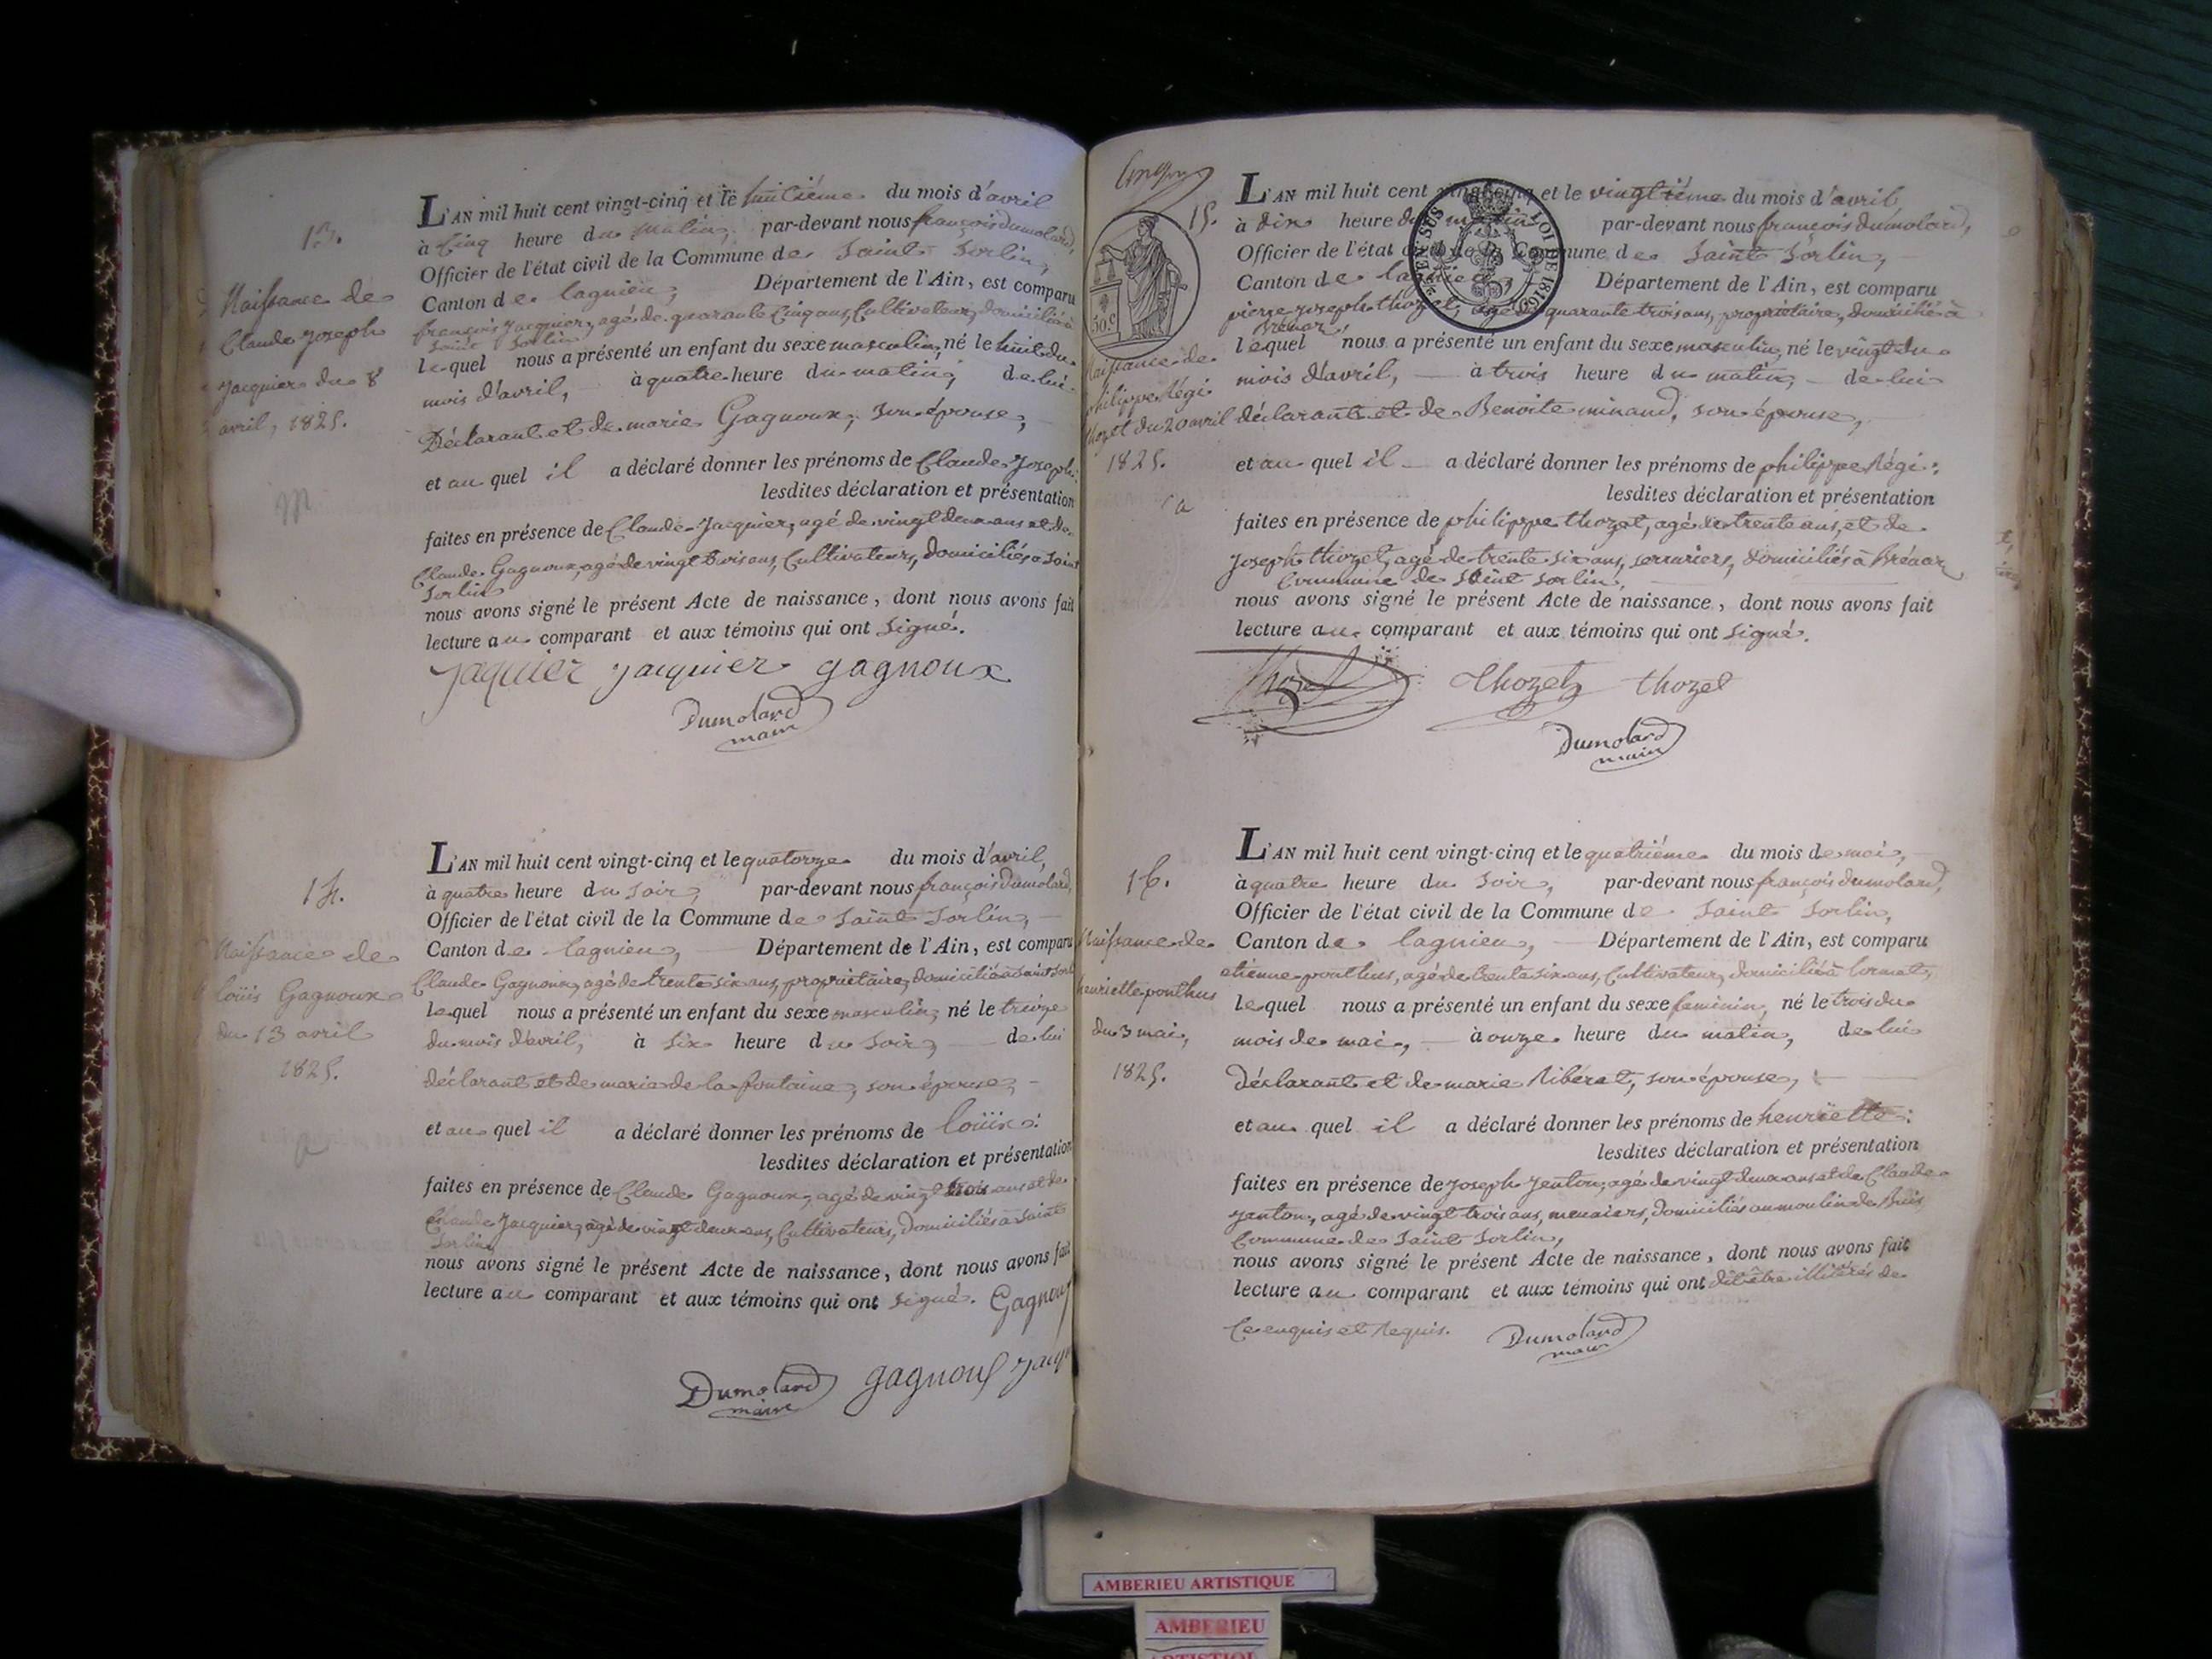 13.
Naissance de
Claude Joseph
Jacquier du 8
avril, 1825.
L'AN mil huit cent vingt-cinq et le huitiéme du mois d'avril
à Cinq heure du matin, par-devant nous françois dumolard,
Officier de l'état civil de la Commune de Saint Sorlin,
Canton de lagnieu, Département de l'Ain, est comparu
françois Jacquier, agé de quarante Cinq ans, Cultivateur, domicilié à
Saint Sorlin
lequel nous a présenté un enfant du sexe masculin, né le huit du
mois d'avril, à quatre heure du matin, de lui
Déclarant et de marie Gagnoux, son épouse,
et au quel il a déclaré donner les prénoms de Claude Joseph:
lesdites déclaration et présentation
faites en présence de Claude Jacquier, agé de vingt deux ans et de
Claude Gagnoux, agé de vingt trois ans, Cultivateurs, domiciliés a Saint
Sorlin
nous avons signé le présent Acte de naissance, dont nous avons fait
lecture au comparant et aux témoins qui ont signé.
Jaquier Jacquier gagnoux
Dumolard
maire
14.
Naissance de
loüis Gagnoux
du 13 avril
1825.
L'AN mil huit cent vingt-cinq et le quatorze du mois d'avril,
à quatre heure du soir, par-devant nous françois dumolard,
Officier de l'état civil de la Commune de Saint Sorlin,
Canton de lagnieu, Département de l'Ain, est comparu
Claude Gagnoux, agé de trente six ans, propriétaire, domicilié a Saint Sorl
lequel nous a présenté un enfant du sexe masculin, né le treize
du mois d'avril, à six heure du soir, de lui
déclarant et de marie de la fontaine, son épouse,
et au quel il a déclaré donner les prénoms de loüis:
lesdites déclaration et présentation
faites en présence de Claude Gagnoux, agé de vingt trois ans et de
Claude Jacquier, agé de vingt deux ans, Cultivateurs, domiciliés à Saint
Sorlin
nous avons signé le présent Acte de naissance, dont nous avons fait
lecture au comparant et aux témoins qui ont signé. Gagnoux
Dumolard gagnoux Jacqu
maire
15.
50.C
EN SUS LOI DE 1816
Naissance de
philippe Régi
thozet du 20 avril
1825.
L'AN mil huit cent vingt-cinq et le vingtiéme du mois d'avril,
à dix heure du matin par-devant nous françois dumolard,
Officier de l'état civil de la Commune de Saint Sorlin,
Canton de lagnieu, Département de l'Ain, est comparu
pierre joseph thozet, agé de quarante trois ans, propriétaire, domicilié à
Brénaz
lequel nous a présenté un enfant du sexe masculin, né le vingt du
mois d'avril, à trois heure du matin, de lui
déclarant et de Benoite minaud, son épouse,
et au quel il a déclaré donner les prénoms de philippe Régi:
lesdites déclaration et présentation
faites en présence de philippe thozet, agé de trente ans, et de
Joseph thozet, agé de trente six ans, serruriers, domiciliés à Brénaz
Commune de Saint Sorlin,
nous avons signé le présent Acte de naissance, dont nous avons fait
lecture au comparant et aux témoins qui ont signé.
Thozet Thozet thozet
Dumolard
maire
16.
Naissance de
henriette ponthus
du 3 mai,
1825.
L'AN mil huit cent vingt-cinq et le quatriéme du mois de mai,
à quatre heure du soir, par-devant nous françois dumolard,
Officier de l'état civil de la Commune de Saint Sorlin,
Canton de lagnieu, Département de l'Ain, est comparu
etienne ponthus, agé de trente six ans, Cultivateur, domicilié à
lequel nous a présenté un enfant du sexe feminin, né le trois du
mois de mai, à onze heure du matin, de lui
déclarant et de marie Ribérat, son épouse,
et au quel il a déclaré donner les prénoms de henriette:
lesdites déclaration et présentation
faites en présence de Joseph Jenton, agé de vingt deux ans et de Claude
Janton, agé de vingt trois ans, meuniers, domiciliés au moulin de Buis
Commune de Saint Sorlin,
nous avons signé le présent Acte de naissance, dont nous avons fait
lecture au comparant et aux témoins qui ont dit être illitérés de
Ce enquis et Requis. Dumolard
maire
AMBERIEU ARTISTIQUE
AMBERIEU
ARTISTIQUE